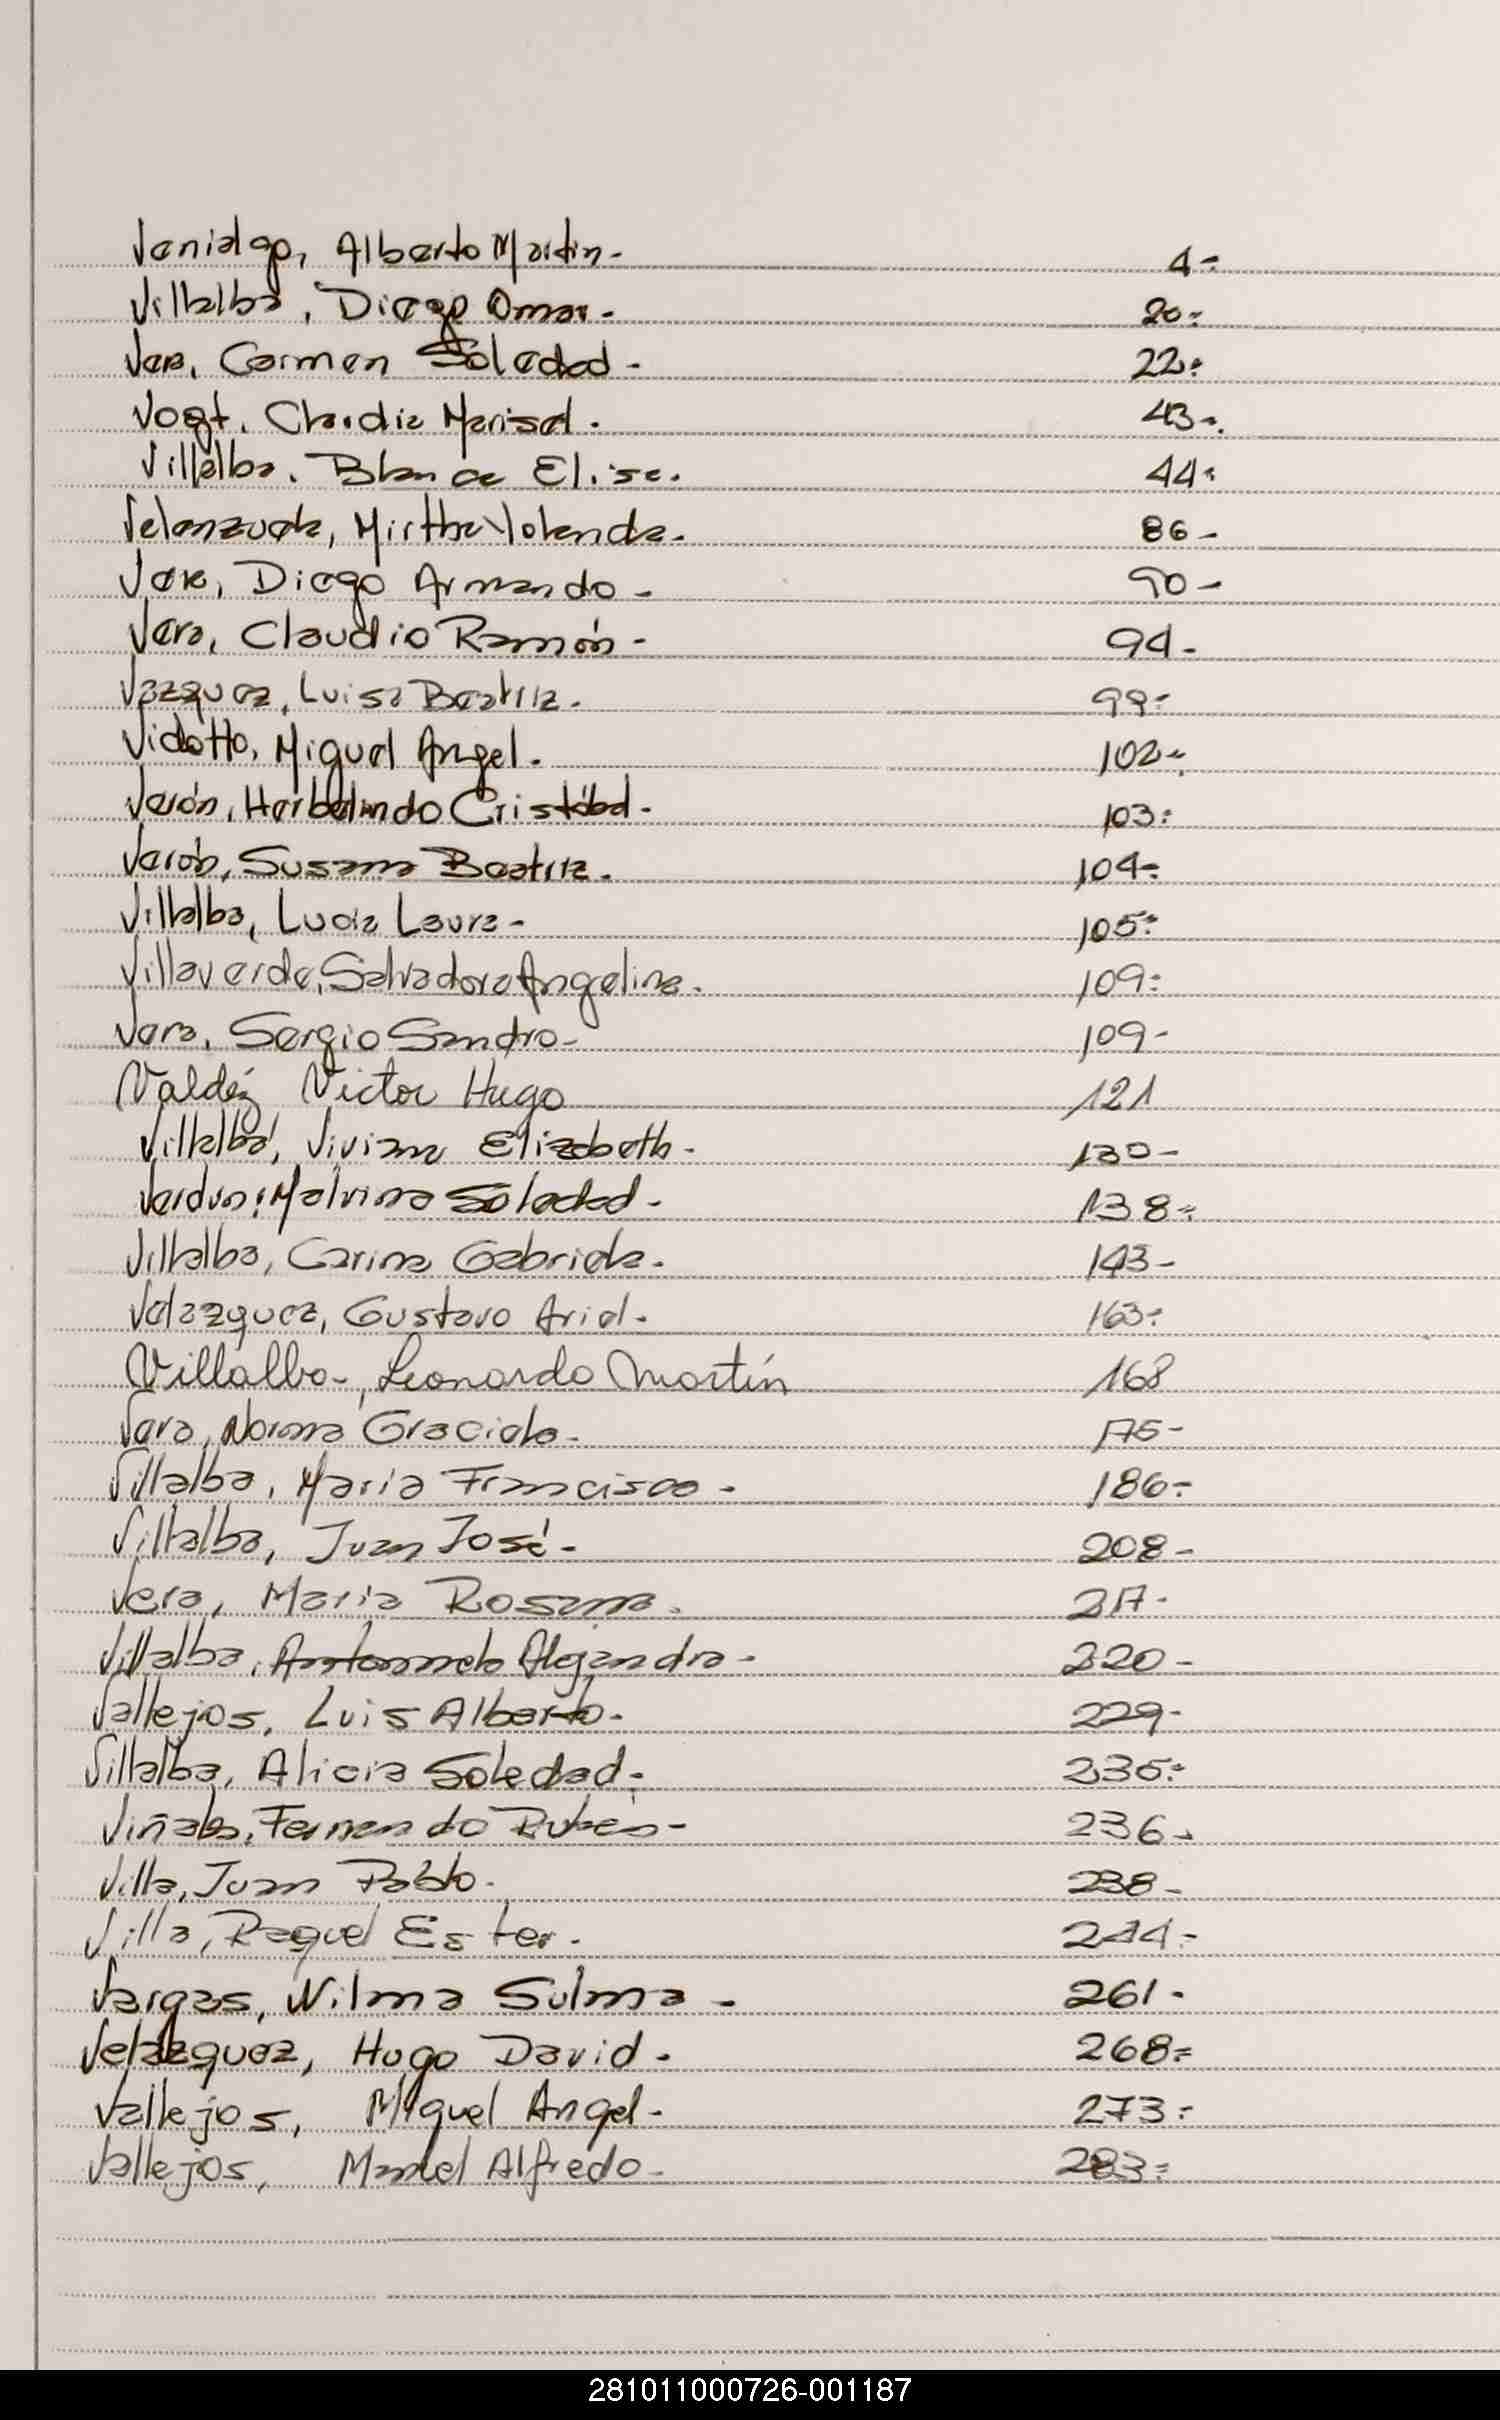 Venialgo, Alberto Martin. 4-
Villalba, Diego Omar. 20-
Vera, Carmen Soledad. 22-
Vogt, Claudia Marisel. 43-.
Villalba, Blanca Elisa. 44-
Velenzuela, Mirtha Yolanda. 86-
Vera, Diego Armando - 90-
Vera, Claudio Ramón - 94-
Vázquez, Luisa Beatriz. 99-
Vidotto, Miguel Angel. 102-
Verón, Heribelindo Cristóbal. 103-
Verón, Susana Beatriz. 104-
Villalba, Lucia Laura - 105-
Villaverde, Salvadora Angelina. 109-
Vera, Sergio Sandro - 109-
Valdéz Victor Hugo 121
Villalba, Viviana Elizabeth - 130-
Verdun, Malvina Soledad - 138-
Villalba, Carina Gabriela. 143-
Velazquez, Gustavo Ariel. 163-
Villalba, Leonardo Martín 168
Vera, Norma Graciela - 175-
Villalba, Maria Francisca - 186-
Villalba, Juan José - 208-
Vera, Maria Rosana. 217-
Villalba, Antonela Alejandra - 220-
Vallejos, Luis Alberto. 229-
Villalba, Alicia Soledad. 235-
Viñals, Fernando Rubén - 236-
Villa, Juan Pablo. 238-
Villa, Raquel Ester. 244-
Vargas, Nilma Sulma - 261-
Velazquez, Hugo David. 268-
Vallejos, Miguel Angel - 273-
Vallejos, Manuel Alfredo - 283-
281011000726-001187